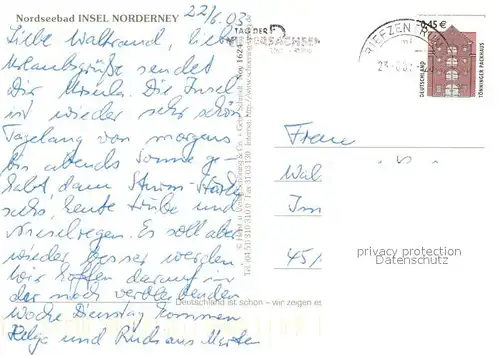 Nordseebad INSEL NORDERNEY
22/6.03
Liebe Waltraud, liebe
Urlaubsgrüße sendet
Dir Ursula. Die Insel
ist wieder sehr schön
Tagelang von morgens
bis abends Sonne ge-
habt, dann Sturm-Stärke
sechs, heute trübe und
Nieselregen. Es soll aber
wieder besser werden
Wir hoffen darauf in
der noch verbleibenden
Woche Dienstag kommen
Helga und Rudi aus
TAG DER
NIEDERSACHSEN
BRIEFZENTRUM
0,45 €
DEUTSCHLAND
TÖNNINGER PACKHAUS
Schöning & Co. + Gebr. Schmidt Noy 1624
Frau
Wal
Im
45
privacy protection
- Disclaimer -
Deutschland ist schön – wir zeigen es